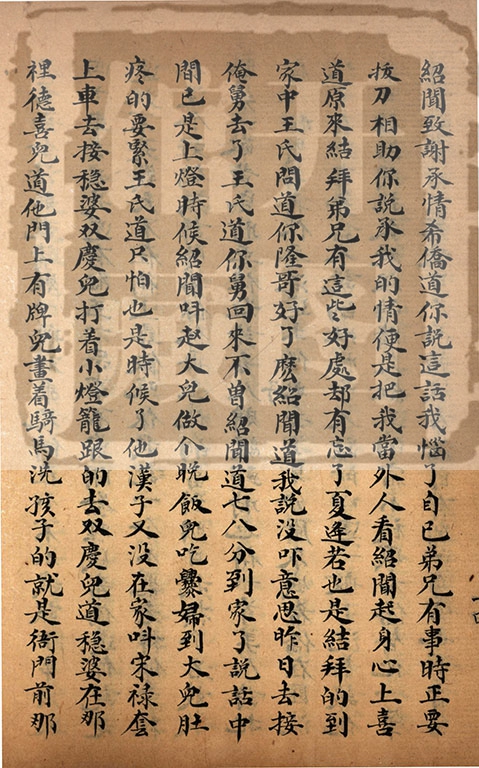 紹聞致謝承情希僑道你說這話我惱了自己弟兄有事時正要
拔刀相助你說承我的情便是把我當外人看紹聞起身心上喜
道原來結拜弟兄有這些好處却有忘了夏逢若也是結拜的到
家中王氏問道你隆哥好了麽紹聞道我說没吓意思昨日去接
俺舅去了王氏道你舅回來不曾紹聞道七八分到家了說話中
間已是上燈時候紹聞呌赵大兒做个晚飯兒吃爨婦到大兒肚
疼的要緊王氏道只怕也是時候了他漢子又没在家呌宋禄套
上車去接稳婆双慶兒打着小燈籠跟的去双慶兒道穩婆在那
裡德喜兒道他門上有牌兒書着騎馬洗孩子的就是衙門前那